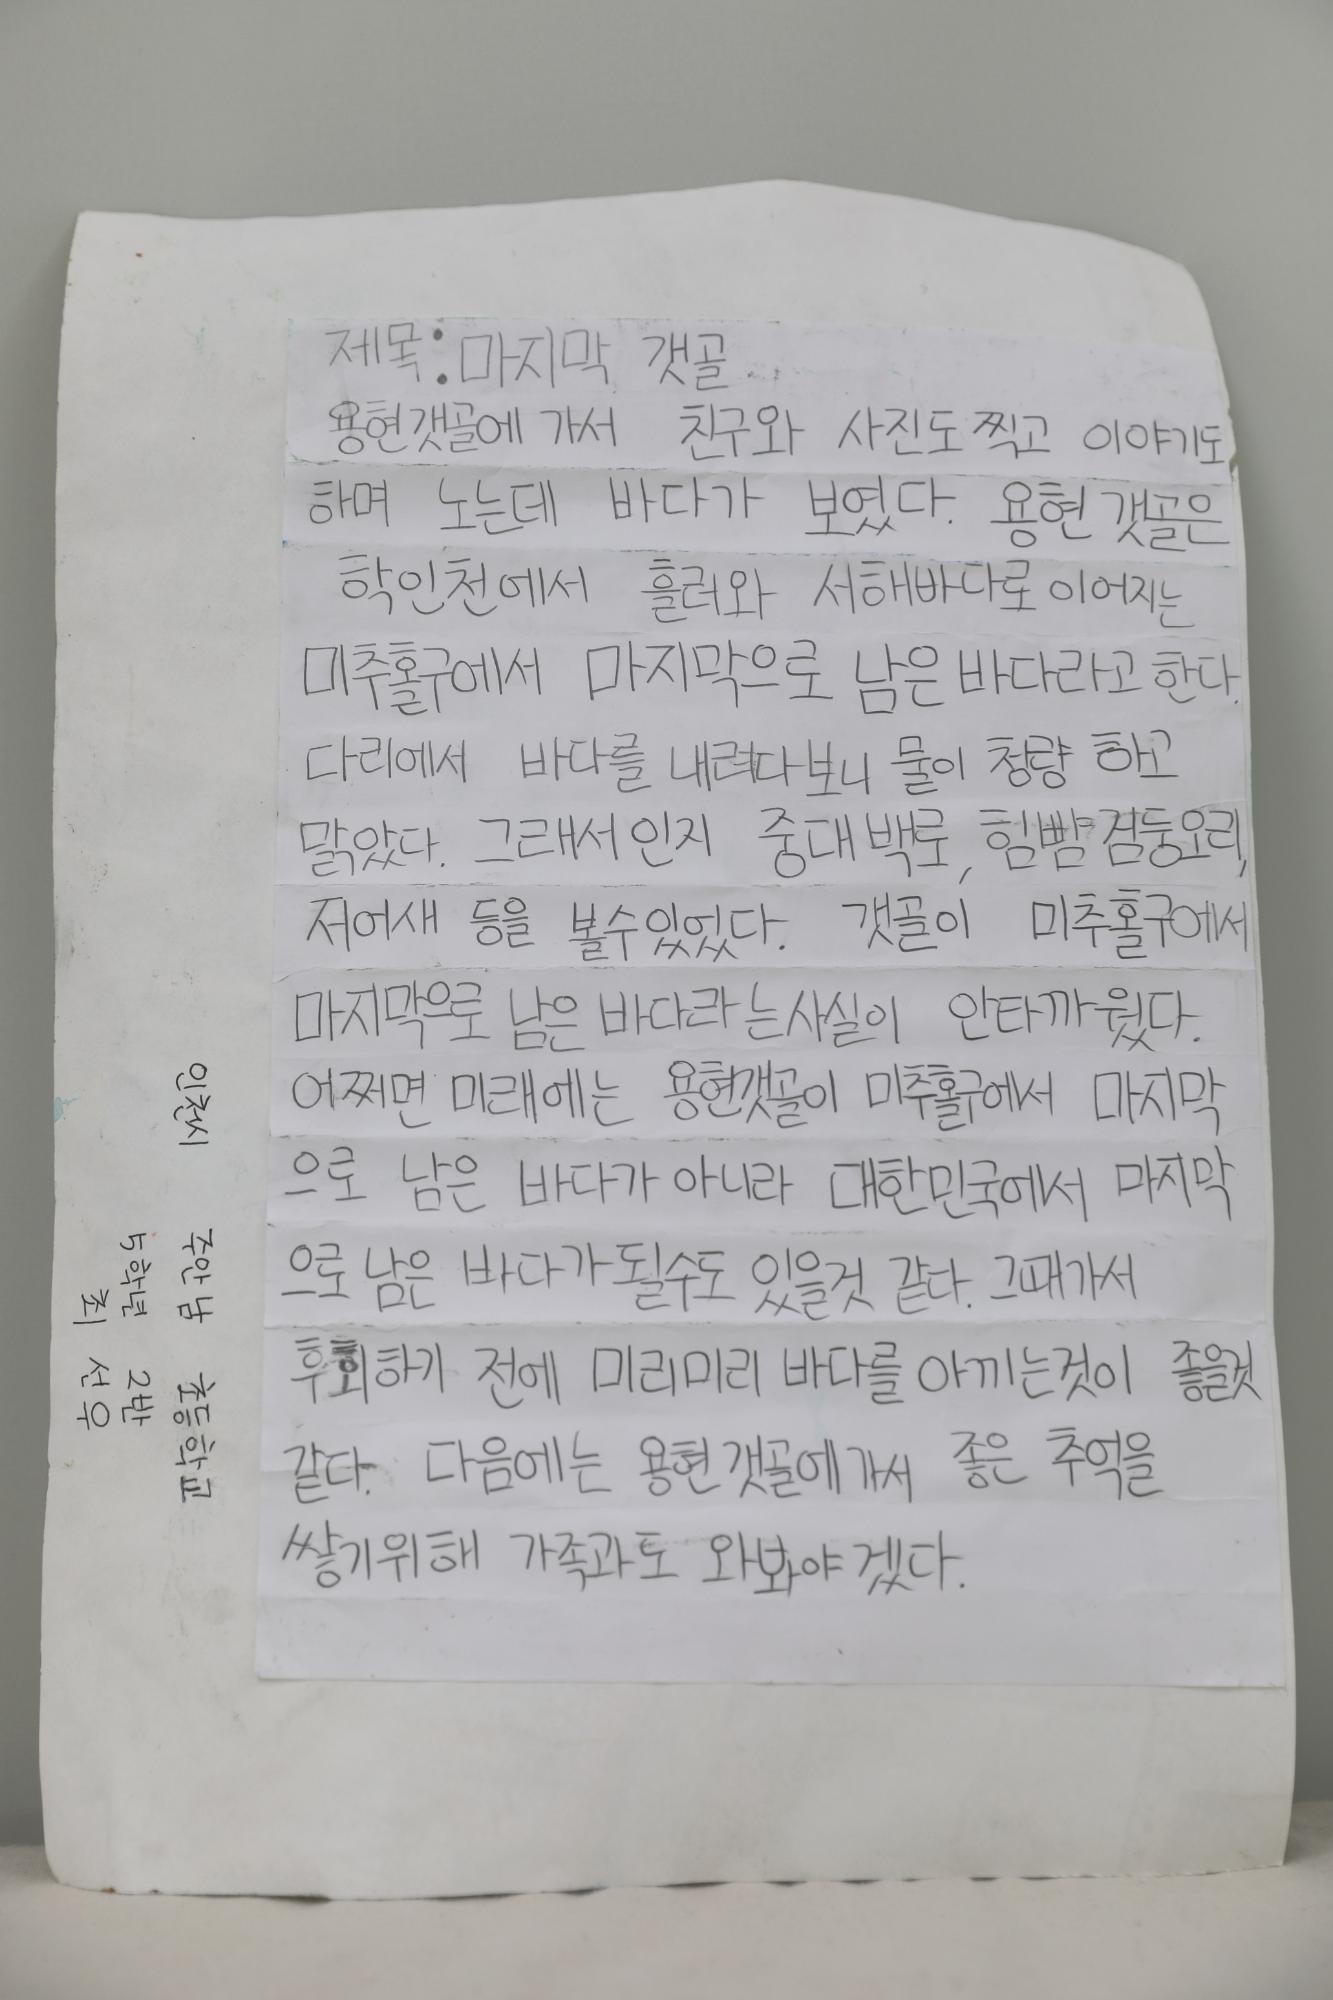 제목: 마지막 갯골
용현갯골에 가서 친구와 사진도 찍고 이야기도
하며 노는데 바다가 보였다. 용현 갯골은
학인천에서 흘러와 서해바다로 이어지는
미추홀구에서 마지막으로 남은 바다라고 한다.
다리에서 바다를 내려다보니 물이 청량 하고
맑았다. 그래서인지 중대백로, 힘뺨검둥오리,
저어새 등을 볼수있었다. 갯골이 미추홀구에서
마지막으로 남은 바다라는사실이 안타까웠다.
어쩌면 미래에는 용현갯골이 미추홀구에서 마지막
으로 남은 바다가 아니라 대한민국에서 마지막
으로 남은 바다가 될수도 있을것 같다. 그때가서
후회하기 전에 미리미리 바다를 아끼는것이 좋을것
같다. 다음에는 용현갯골에가서 좋은 추억을
쌓기위해 가족과도 와봐야겠다.
인천시 주안남 초등학교
5학년 2반
최 선우